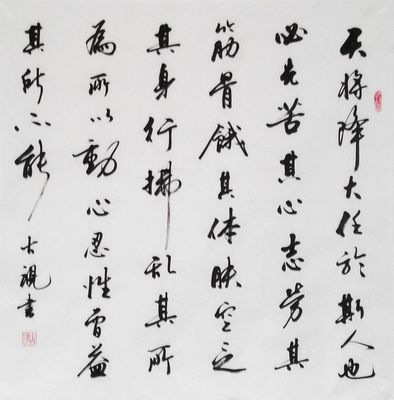 天将降大任於斯人也
必先苦其心志劳其
筋骨餓其体肤空乏
其身行拂乱其所
為所以動心忍性曾益
其所不能
書